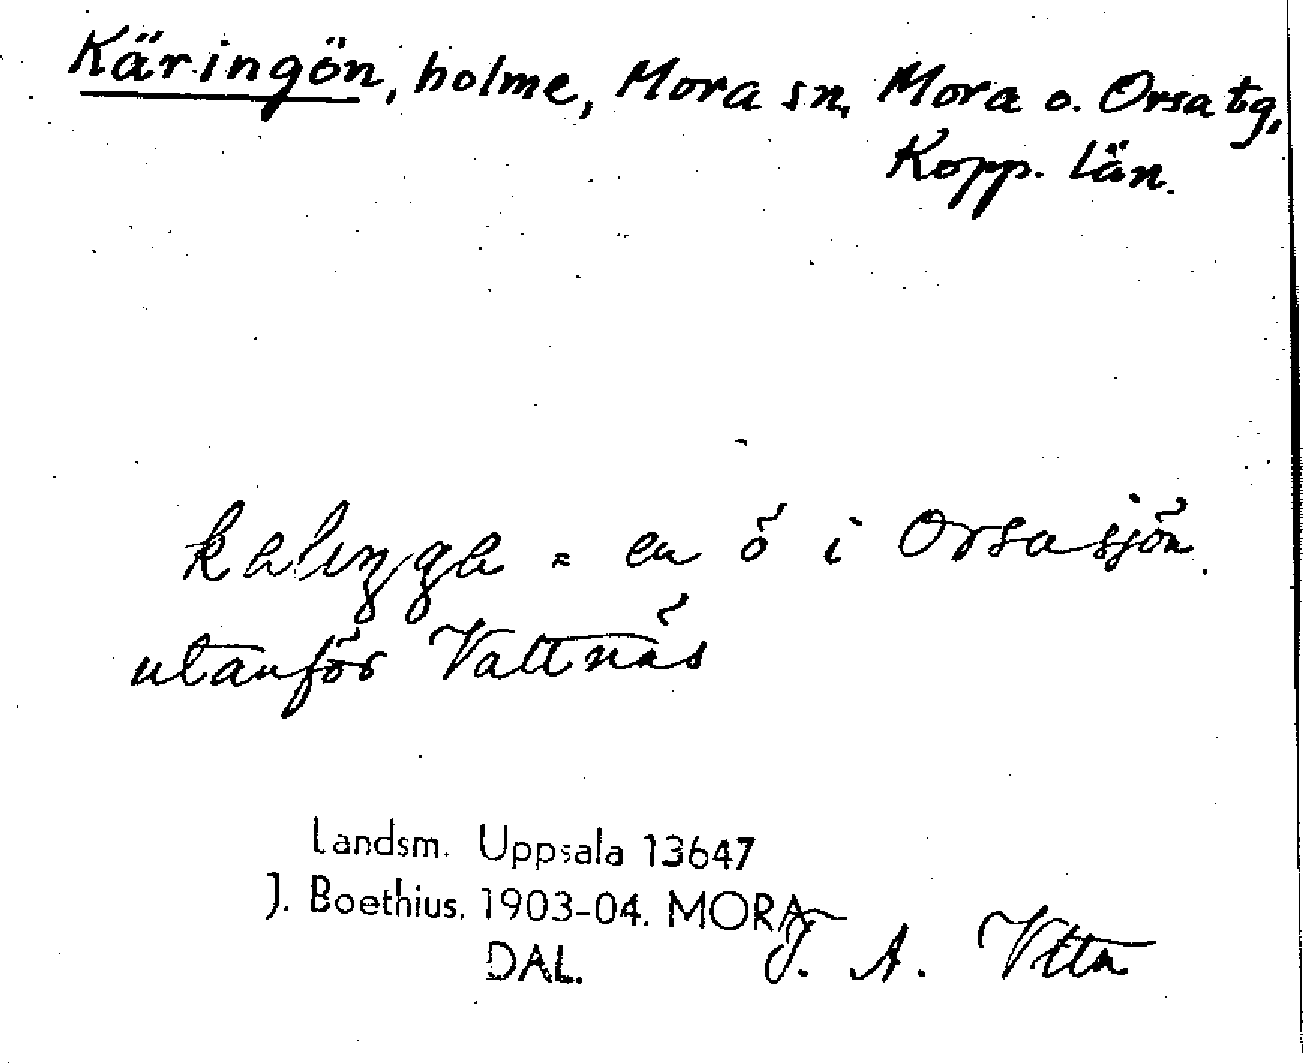 Käringön, holme, Mora sn, Mora o. Orsa tg,
Kopp. län.
= en ö i Orsasjön
utanför Vattnäs
Landsm. Uppsala 13647
J. Boethius. 1903-04. MORA
DAL. J. A. Vttn